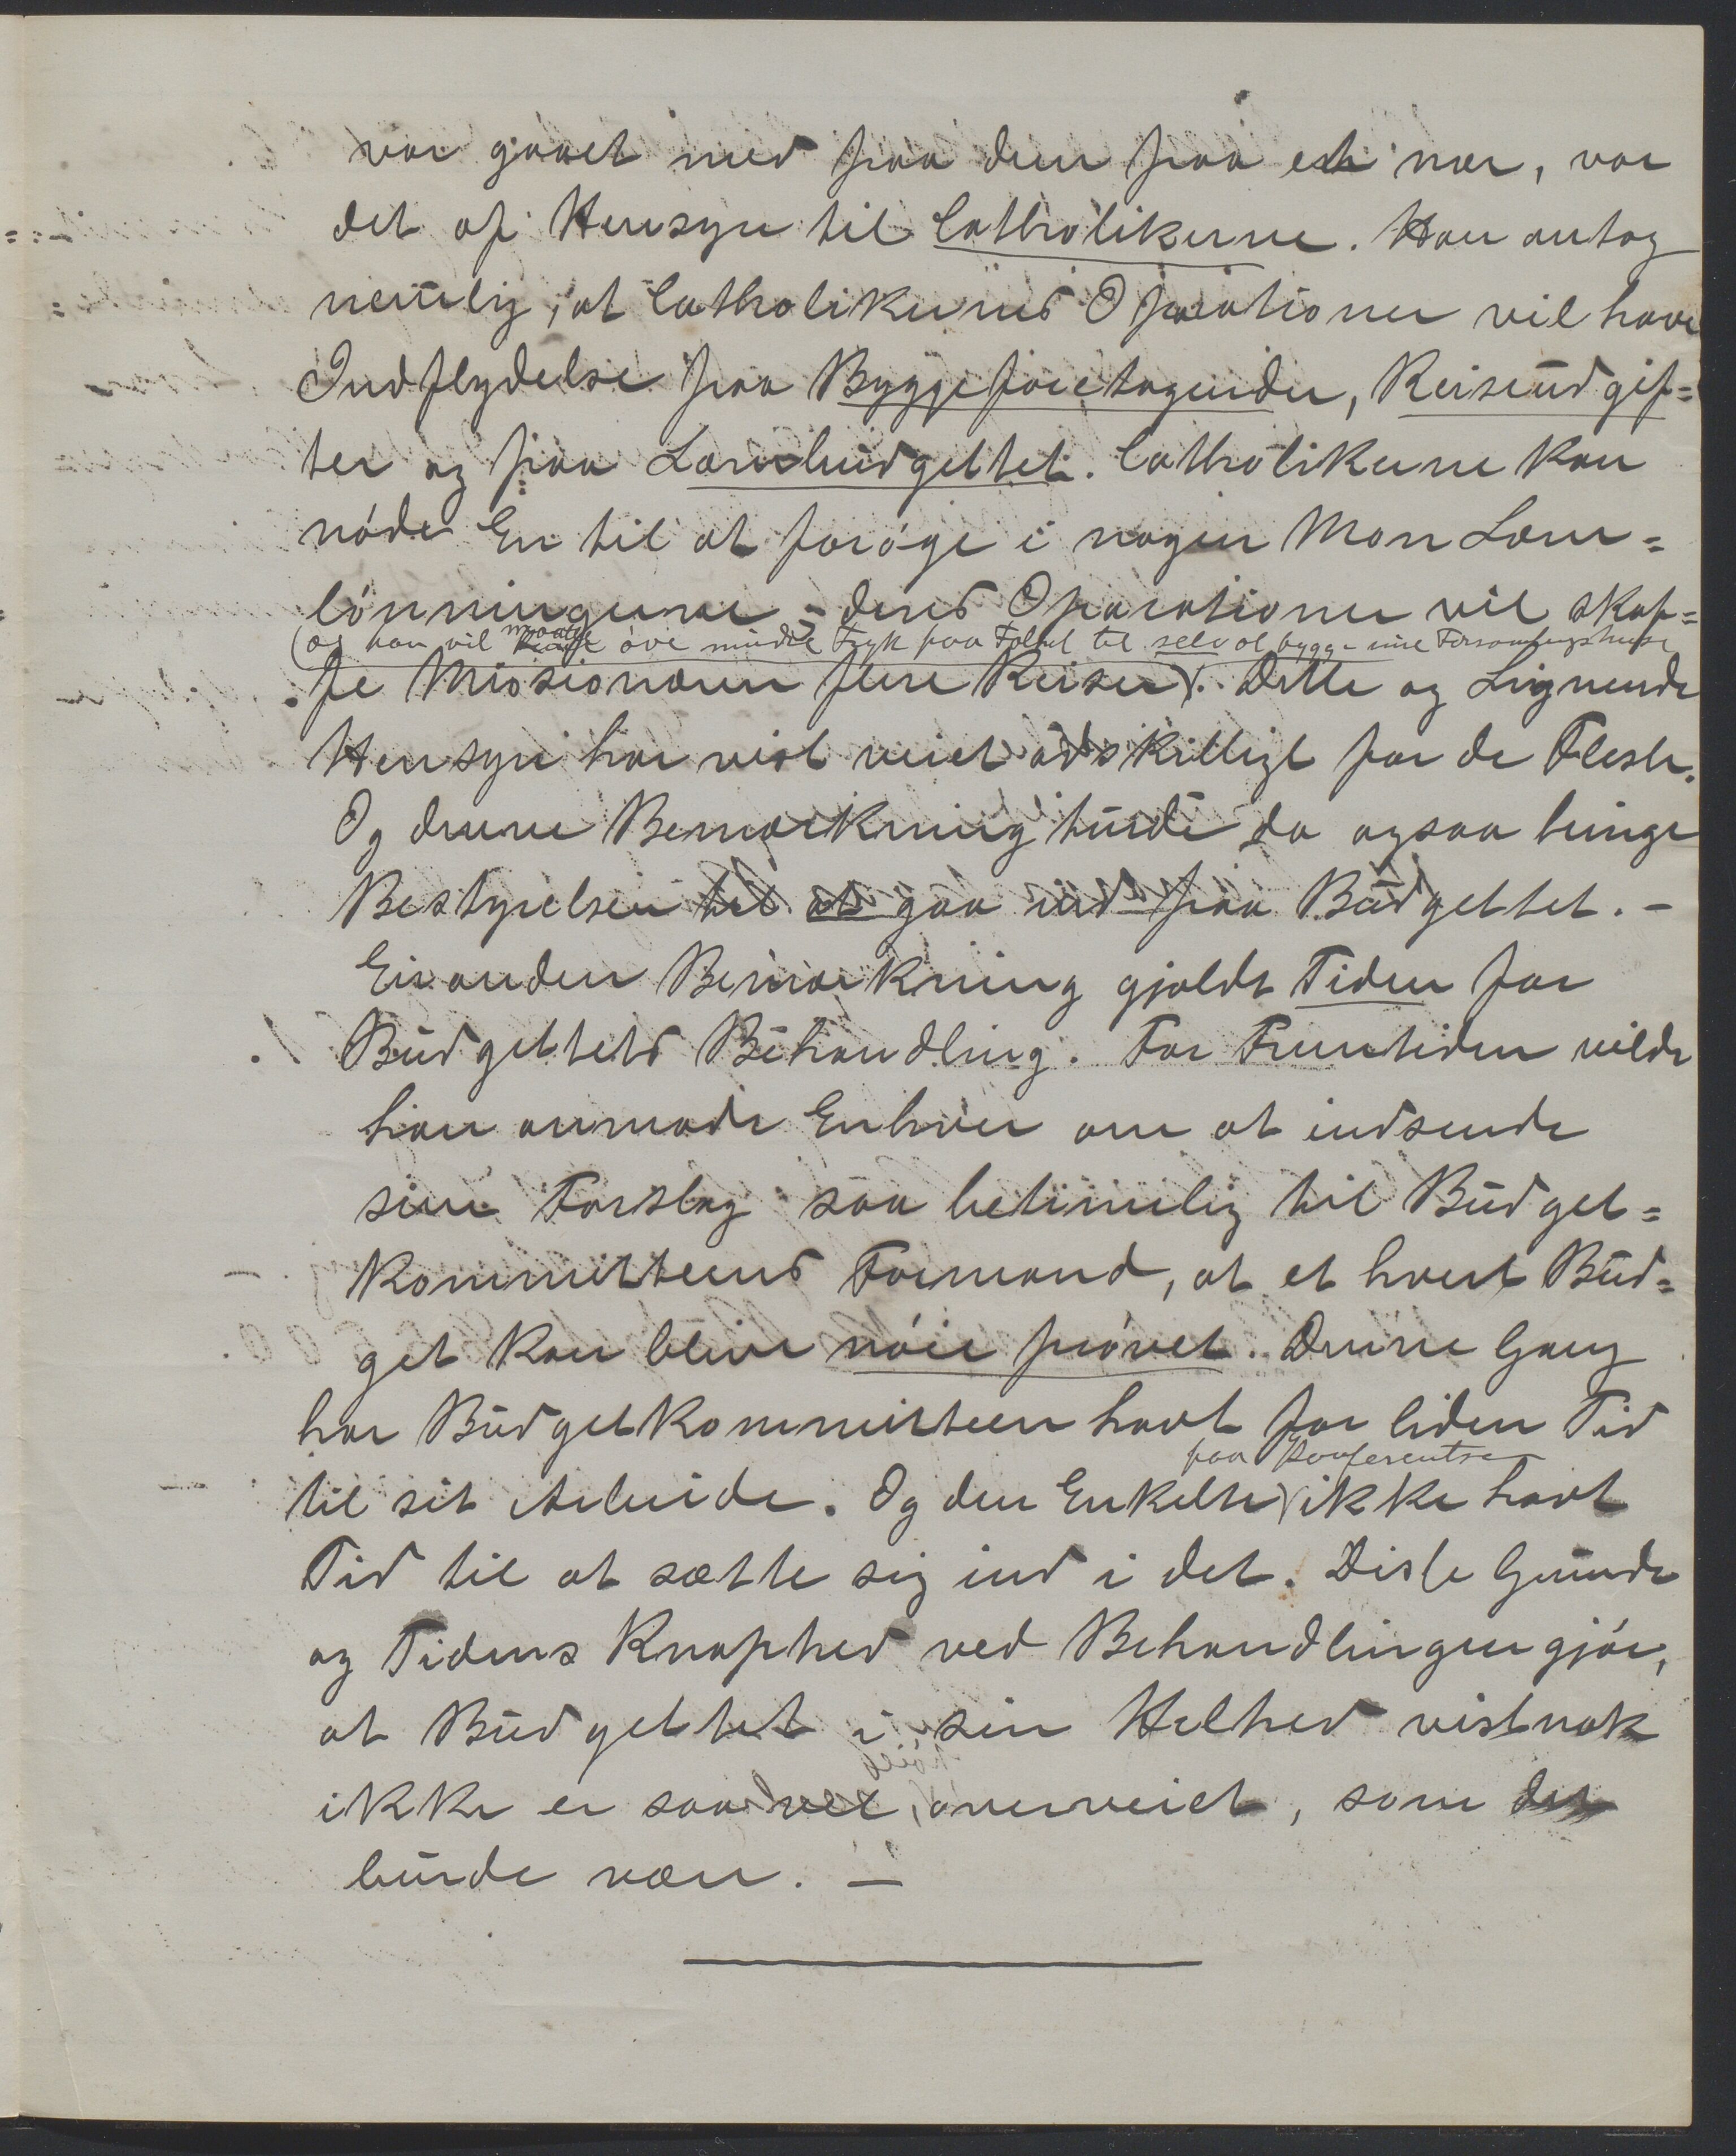 var gaaet med paa den paa et nær, var
det af Hensyn til Catholikerne. Han antog
nemlig, at Catholikernes Operationer vil have
Indflydelse paa Byggeforetagender, Reiseudgif=
ter og paa Lærerbudgettet. Catholikerne kan
nøde En til at forøge i nogen Mon Lærer=
lønningerne – deres Operationer vil skaf=
(og han vil maatte øve mindre Tryk paa Folket til selv at bygge sine Forsamlingshuse
fe Missionæren flere Reiser). Dette og Lignende
Hensyn har vist veiet adskilligt for de Fleste.
Og denne Bemærkning turde da ogsaa bringe
Bestyrelsen til at gaa ind paa Budgettet. –
En anden Bemærkning gjaldt Tiden for
Budgettets Behandling. For Fremtiden vilde
han anmode Enhver om at indsende
sine Forslag saa betimelig til Budget=
kommitteens Formand, at et hvert Bud=
get kan blive nøie prøvet. Denne Gang
har Budgetkommitteen havt for liden Tid
paa Konferentsen
til sit Arbeide. Og den Enkelte ikke havt
Tid til at sætte sig ind i det. Disse Grunde
og Tidens Knaphed ved Behandlingen gjør,
at Budgettet i sin Helhed vistnok
ikke er saa vel overveiet, som det
burde være. –